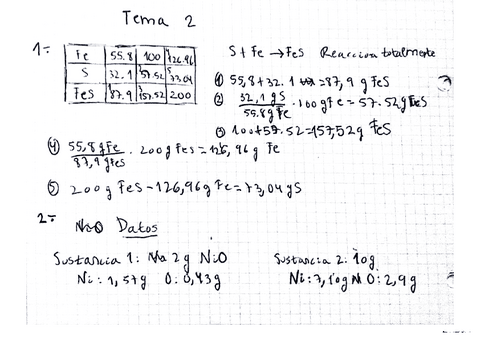 Tema 2
1=
Fe 55.8 100 126.96
S 32.1 57.52 73,04
FeS 87.9 157.52 200
S + Fe → FeS Reacciona totalmente
① 55,8+32.1 = 87,9 g FeS
② 32,1 gS / 55.8g Fe · 100g Fe = 57.52g FeS
③ 100+57.52=157,52g FeS
④ 55,8g Fe / 87,9g FeS · 200g FeS = 126,96g Fe
⑤ 200g FeS - 126,96g Fe = 73,04g S
2= Datos
Sustancia 1: 2g NiO Sustancia 2: 10g
Ni: 1,57g O: 0,43g Ni: 7,10g O: 2,9g